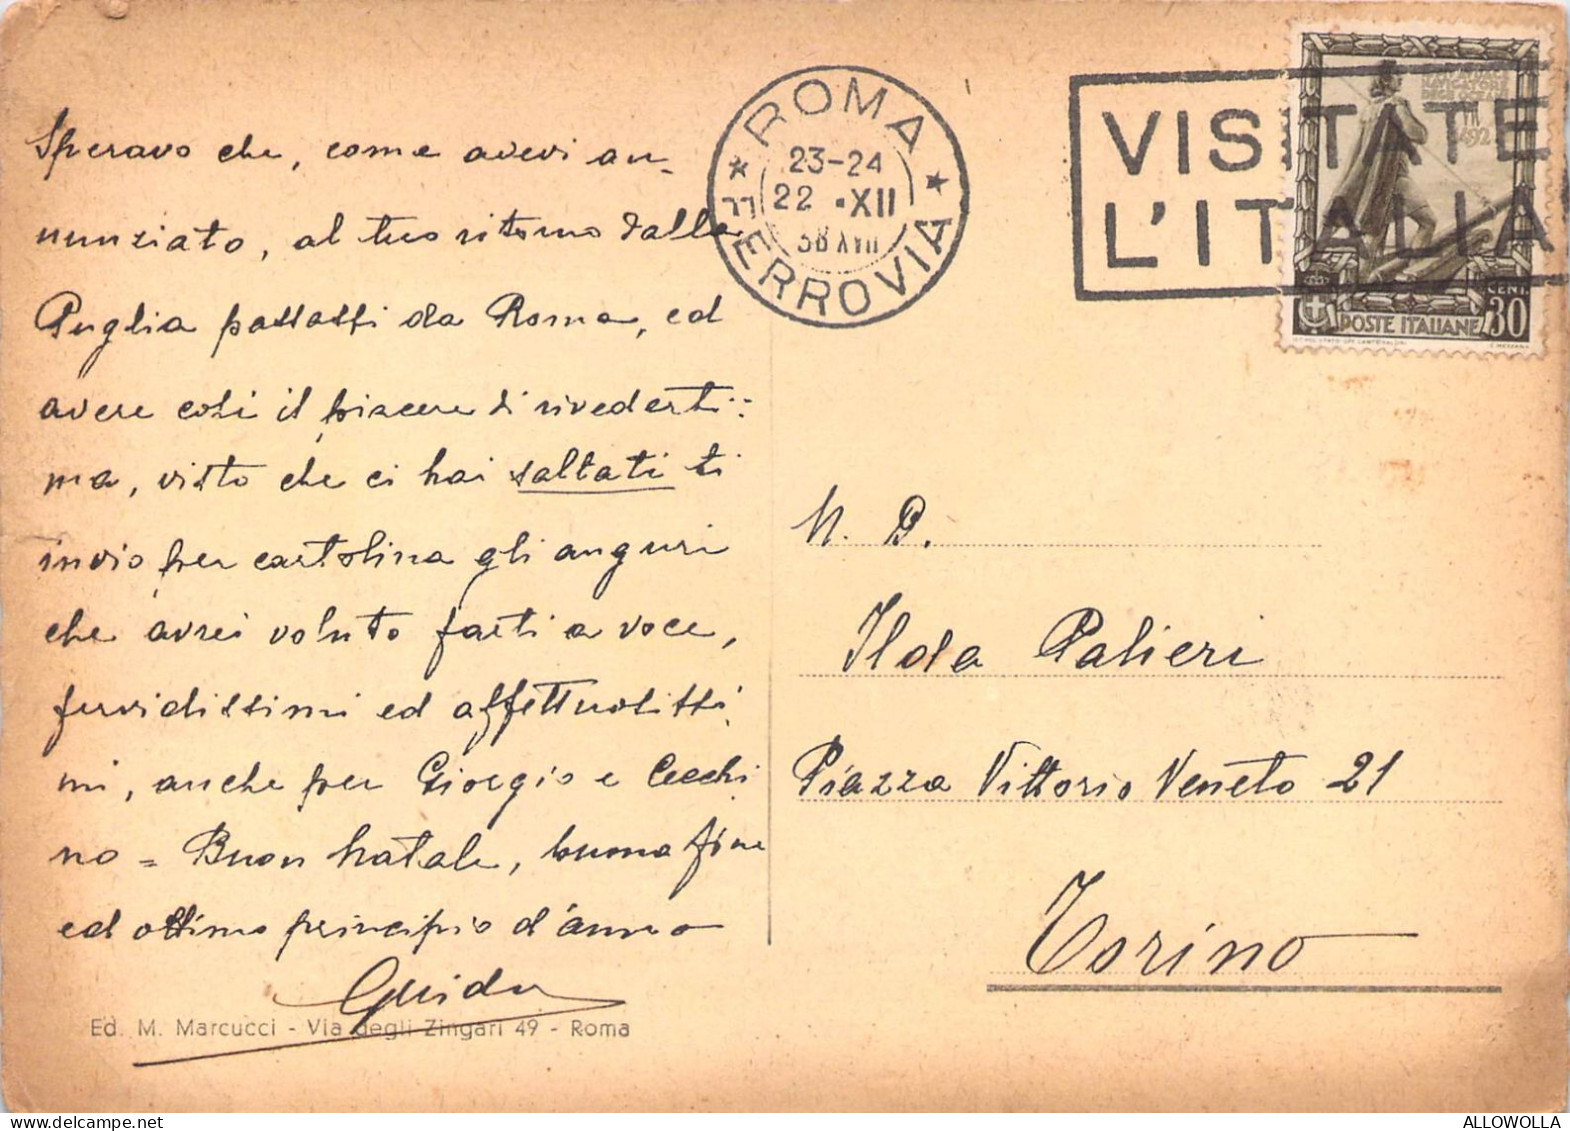 Speravo che, come avevi an-
nunziato, al tuo ritorno dalla
Puglia passassi da Roma, ed
avere così il piacere di rivederti:
ma, visto che ci hai saltati ti
invio per cartolina gli auguri
che avrei voluto farti a voce,
fervidissimi ed affettuosissi
mi, anche per Giorgio e Cecchi
no = Buon Natale, buona fine
ed ottimo principio d'anno
Guido
Ed. M. Marcucci - Via degli Zingari 49 - Roma
ROMA
FERROVIA
23-24
22 • XII
38 XVII
VISITATE
L'ITALIA
1492
CENT.
30
POSTE ITALIANE
N. D.
Ilda Palieri
Piazza Vittorio Veneto 21
Torino
ALLOWOLLA